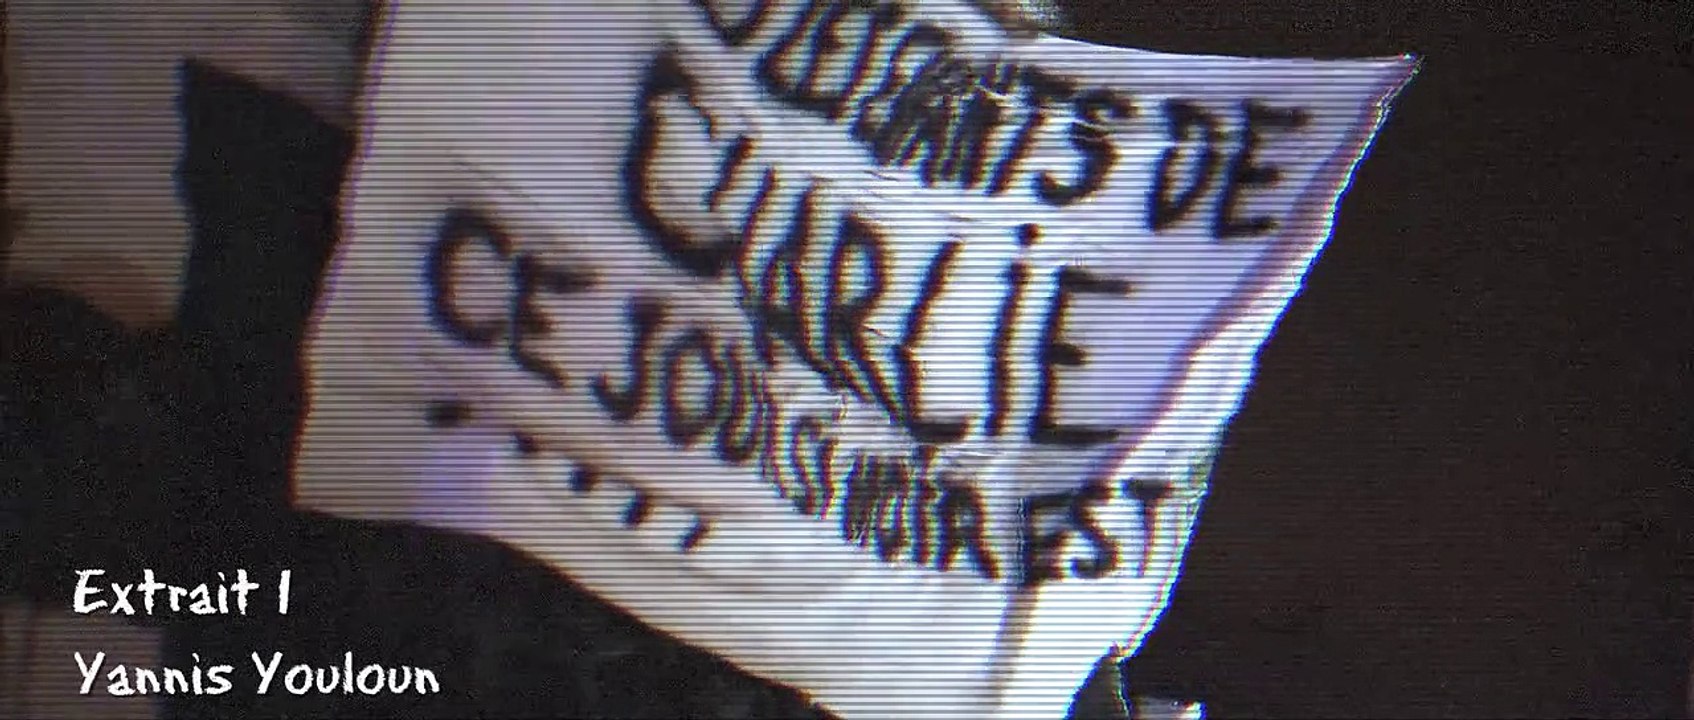 DE
CHARLIE
CE JOUR NOIR EST
.....
Extrait 1
Yannis Youloun